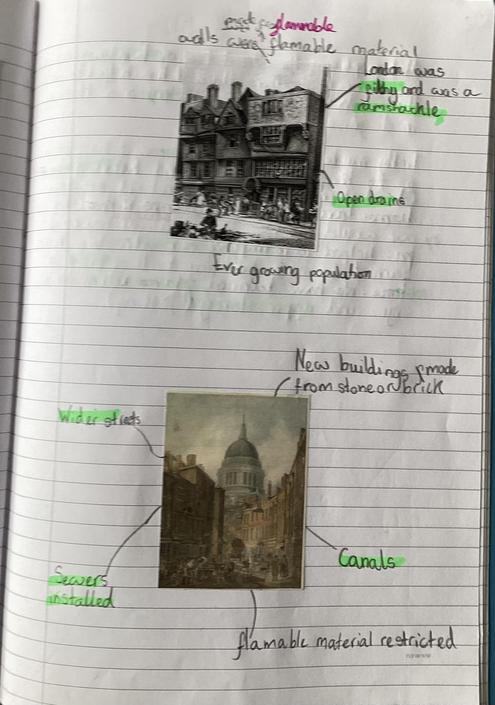 made of flammable
walls were flamable material
London was
filthy and was a
ramshackle
Open drains
Ever growing population
New buildings made
from stone or brick
Wider streets
Canals
Sewers
installed
flamable material restricted